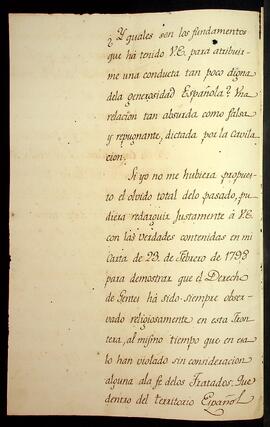 ¿Y quales son los fundamentos
que há tenido V.E. para atribuir-
me una conducta tan poco digna
dela generosidad Española? Una
relacion tan absurda como falsa
y repugnante, dictada por la cavila
cion.
Si yo no me hubiera propues-
to el olvido total delo pasado, pu-
diera redarguir justamente á V.E.
con las verdades contenidas en mi
Carta de 23. de Febrero de 1793
para demostrar que el Derecho
de Gentes há sido siempre obser-
vado religiosamente en esta Fron-
tera, al mismo tiempo que en
to han violado sin consideracion
alguna ala fe delos Tratados. Que
dentro del territorio Español